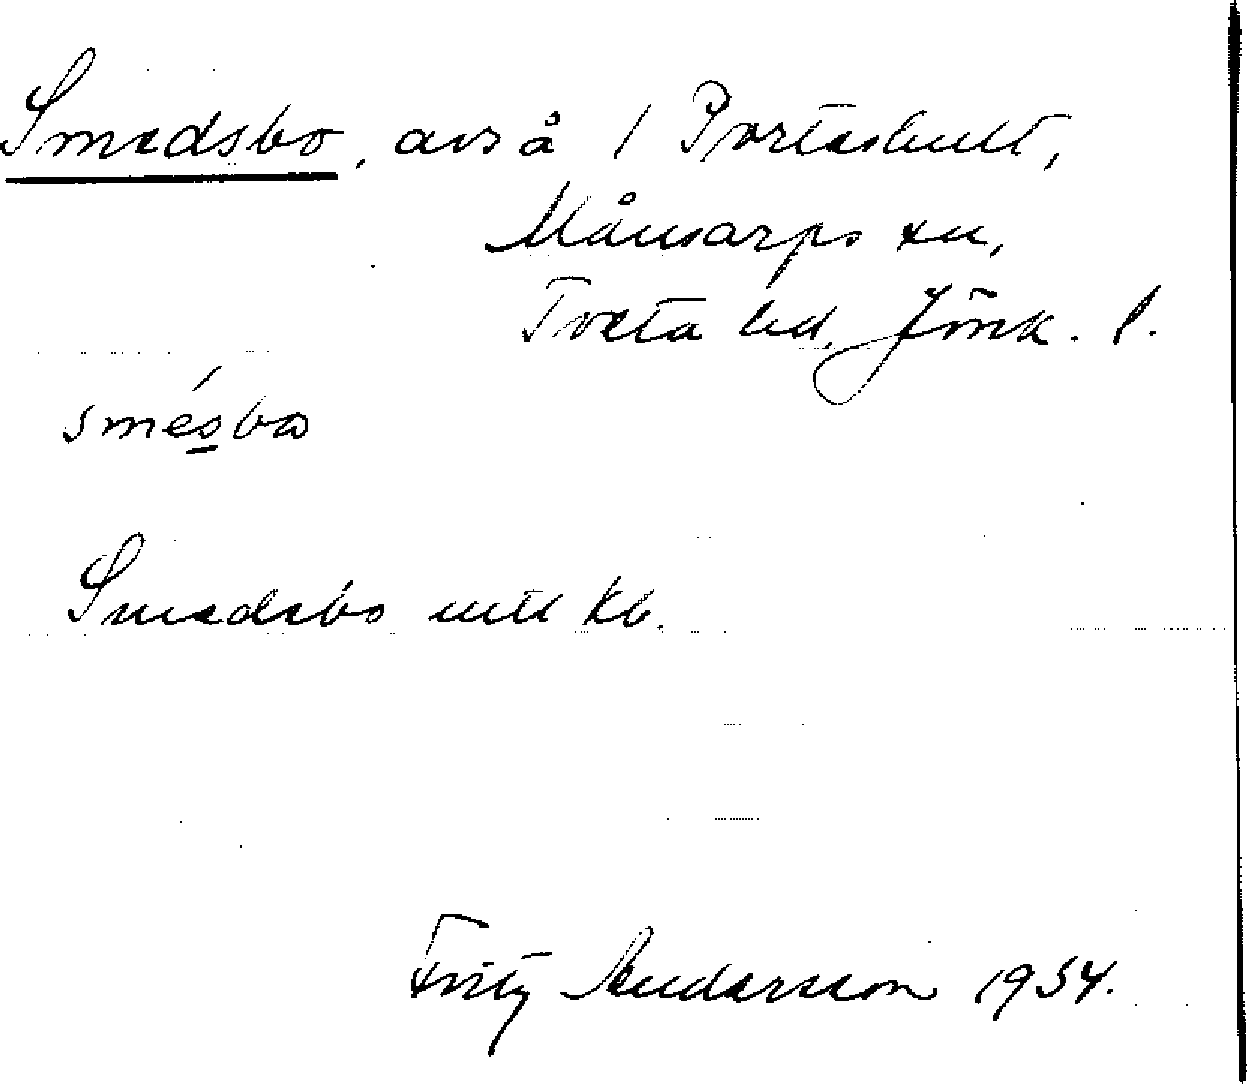 Smedsbo, avs å 1 Portashult,
Månsarps sn,
Tveta hd, Jönk. l.
smésbo
Smedsbo utt kb.
Fritz Andersson 1954.